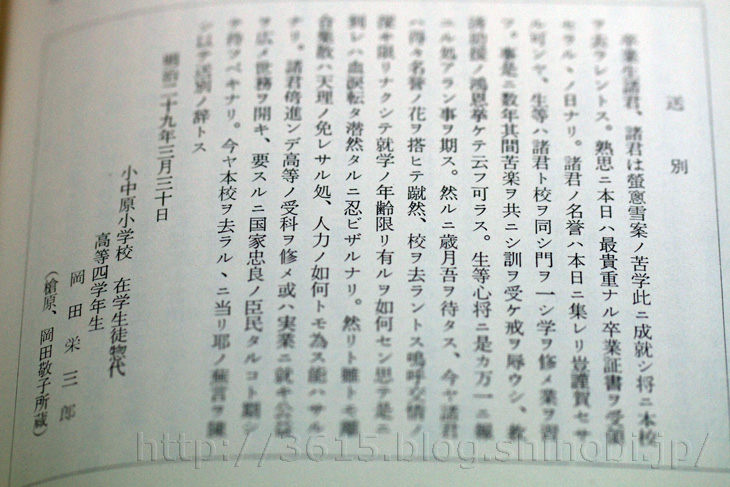 送別
卒業生諸君、諸君は螢窓雪案ノ苦学此ニ成就シ将ニ本校
ヲ去ラレントス。熟思ニ本日ハ最貴重ナル卒業証書ヲ受領
セラルヽノ日ナリ。諸君ノ名誉ハ本日ニ集レリ豈謹賀セサ
ル可シヤ、生等ハ諸君ト校ヲ同シ門ヲ一シ学ヲ修メ業ヲ習
フ。事是ニ数年其間苦楽ヲ共ニシ訓ヲ受ケ戒ヲ辱ウシ、教
誘助援ノ鴻恩挙ケテ云フ可ラス。生等心将ニ是カ万一ニ報
ユル処アラン事ヲ期ス。然ルニ歳月吾ヲ待タス、今ヤ諸君
ハ得々名誉ノ花ヲ搭ヒテ蹴然、校ヲ去ラントス嗚呼交情ノ
深キ限リナクシテ就学ノ年齢限リ有ルヲ如何セン思テ是ニ
到レハ血涙転タ潸然タルニ忍ビザルナリ。然リト雖トモ離
合集散ハ天理ノ免レサル処、人力ノ如何トモ為ス能ハサル
ナリ。諸君倍進ンデ高等ノ受科ヲ修メ或ハ実業ニ就キ公益
ヲ広メ世務ヲ開キ、要スルニ国家忠良ノ臣民タルコト期シ
テ待ツベキナリ。今ヤ本校ヲ去ラルヽニ当リ耶ノ蕪言ヲ陳
シ以テ送別ノ辞トス
明治二十九年三月三十日
小中原小学校 在学生徒惣代
高等四学年生
岡田栄三郎
(槍原、岡田敬子所蔵)
http://3615.blog.shinobi.jp/